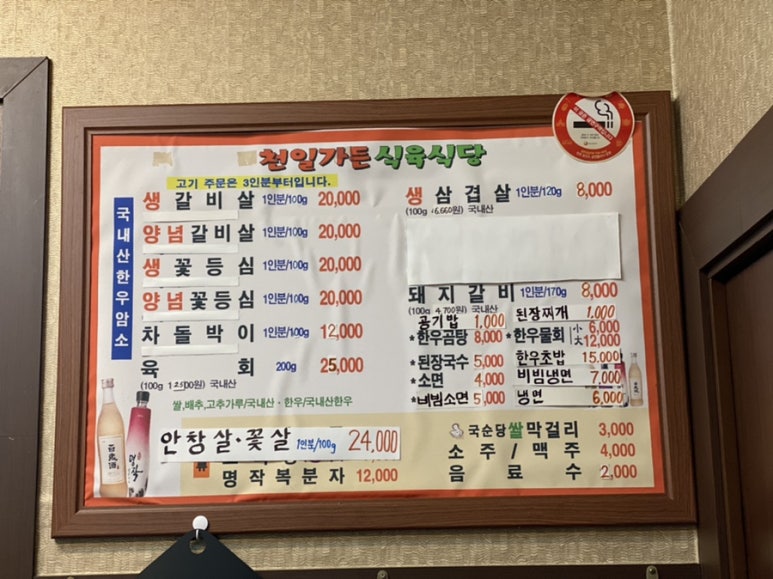 천일가든 식육식당
고기 주문은 3인분부터입니다.
국내산한우암소
생 갈비살 1인분/100g 20,000
양념갈비살 1인분/100g 20,000
생 꽃등심 1인분/100g 20,000
양념꽃등심 1인분/100g 20,000
차돌박이 1인분/100g 12,000
육회 200g 25,000
(100g 12500원) 국내산
쌀,배추,고추가루/국내산 · 한우/국내산한우
안창살·꽃살 1인분/100g 24,000
류
명작복분자 12,000
생삼겹살 1인분/120g 8,000
(100g 6,660원) 국내산
돼지갈비 1인분/170g 8,000
(100g 4,700원) 국내산
공기밥 1,000
된장찌개 1,000
*한우곰탕 8,000
*한우물회 小 6,000
大 12,000
*된장국수 5,000
한우초밥 15,000
*소면 4,000
비빔냉면 7,000
*비빔소면 5,000
냉면 6,000
국순당쌀막걸리 3,000
소주/맥주 4,000
음료수 2,000